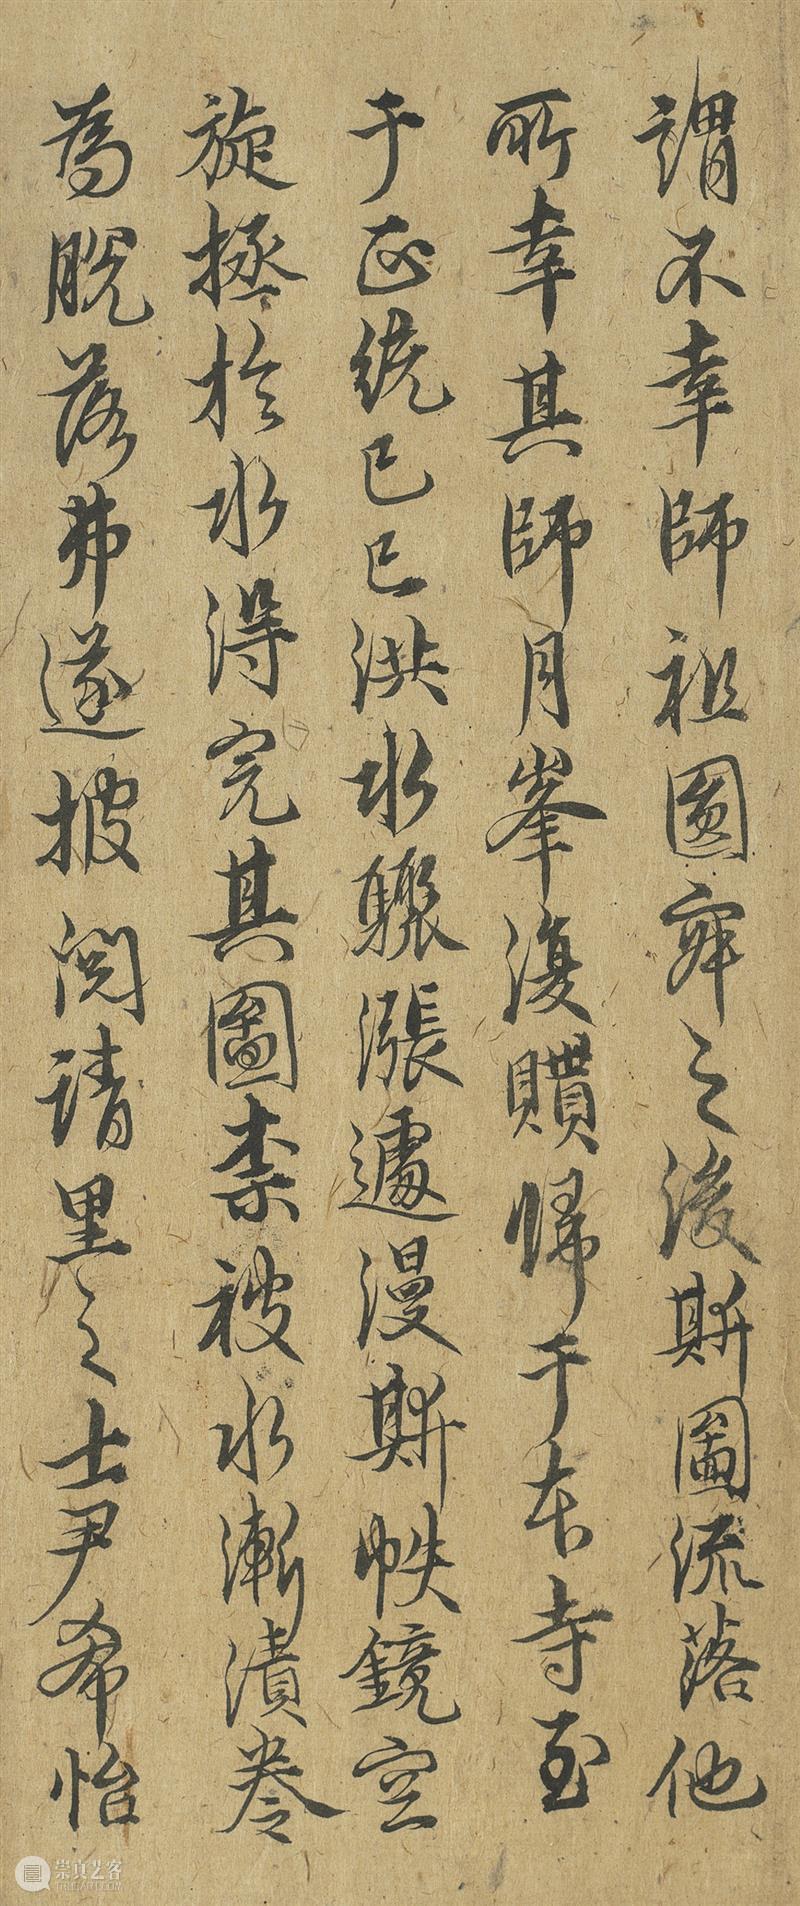 謂不幸師祖圓寂之後斯圖流落他
所幸其師月峯復贖歸于本寺至
于正統己巳洪水驟漲遽漫斯帙鏡空
旋拯於水得完其圖柰被水漸漬卷
為脫落弗遂披閱請里之士尹希怡
崇真艺客